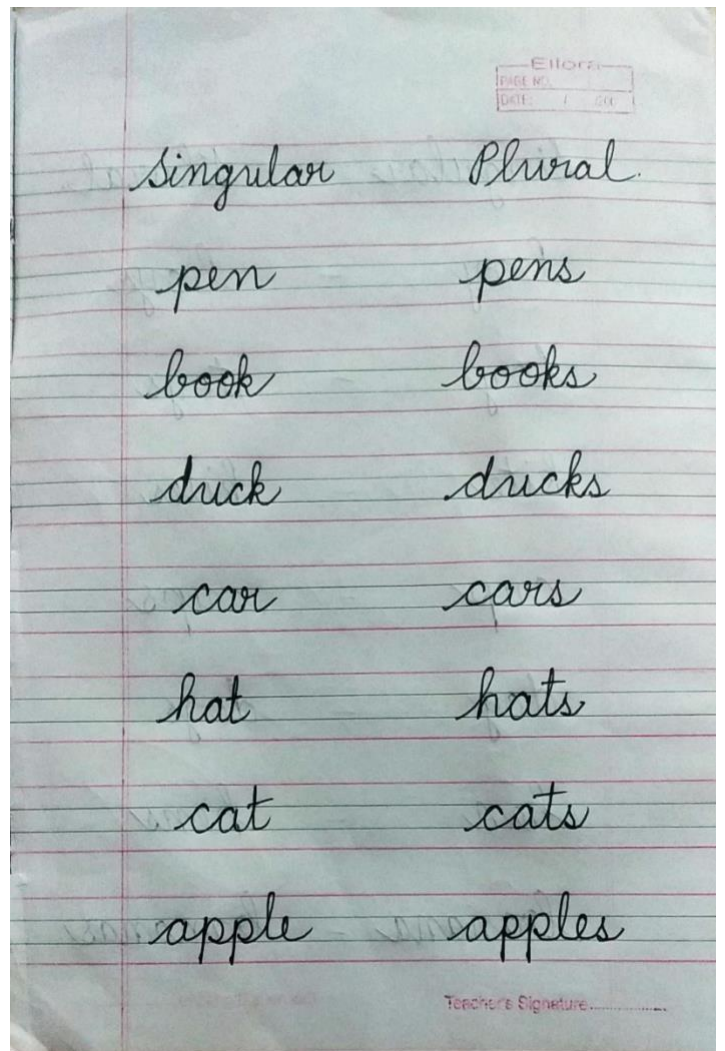 Ellora
PAGE NO.
DATE: / /200
Singular Plural.
pen pens
book books
duck ducks
car cars
hat hats
cat cats
apple apples
Teacher's Signature..................